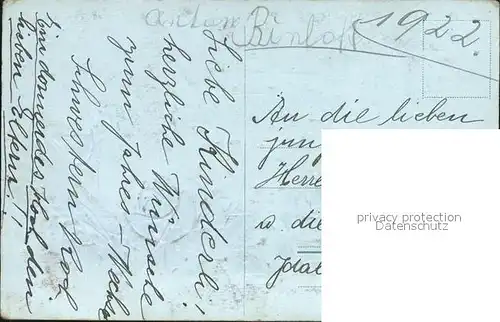 Anton Rinloff
1922.
Liebe Kinderli!
herzliche Wünsche
zum Jahres-Wechsel
Schwestern Koch
Ein donnerndes Hoch den
lieben Eltern!
An die lieben
jun
Herre
u. die
Ida
privacy protection
datenschutz